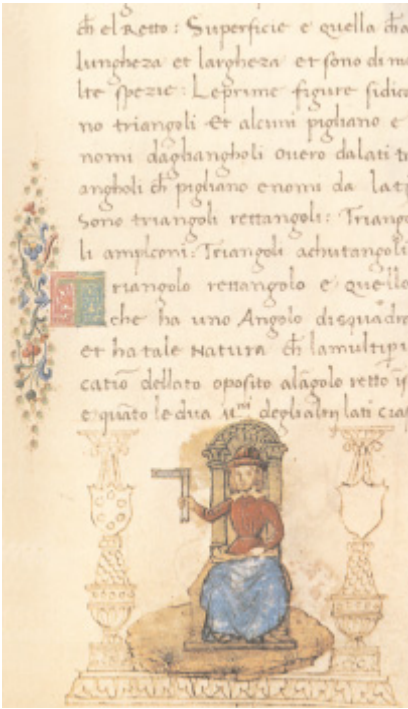 ch el Retto: Superficie e quella cha
lungheza et largheza et sono di mo
lte spezie: Leprime figure sidico
no triangoli Et alcuni pigliano e
nomi daghiangholi overo dalati tr
angholi ch pigliano enomi da lati
Sono triangoli rettangoli: Triango
li amplconi: Triangoli achutangoli
riangolo rettangolo e quello
che ha uno Angolo disquadro
et ha tale Natura ch lamultipli
catio dellato oposito alagolo retto
e quato le dua deglialtri lati